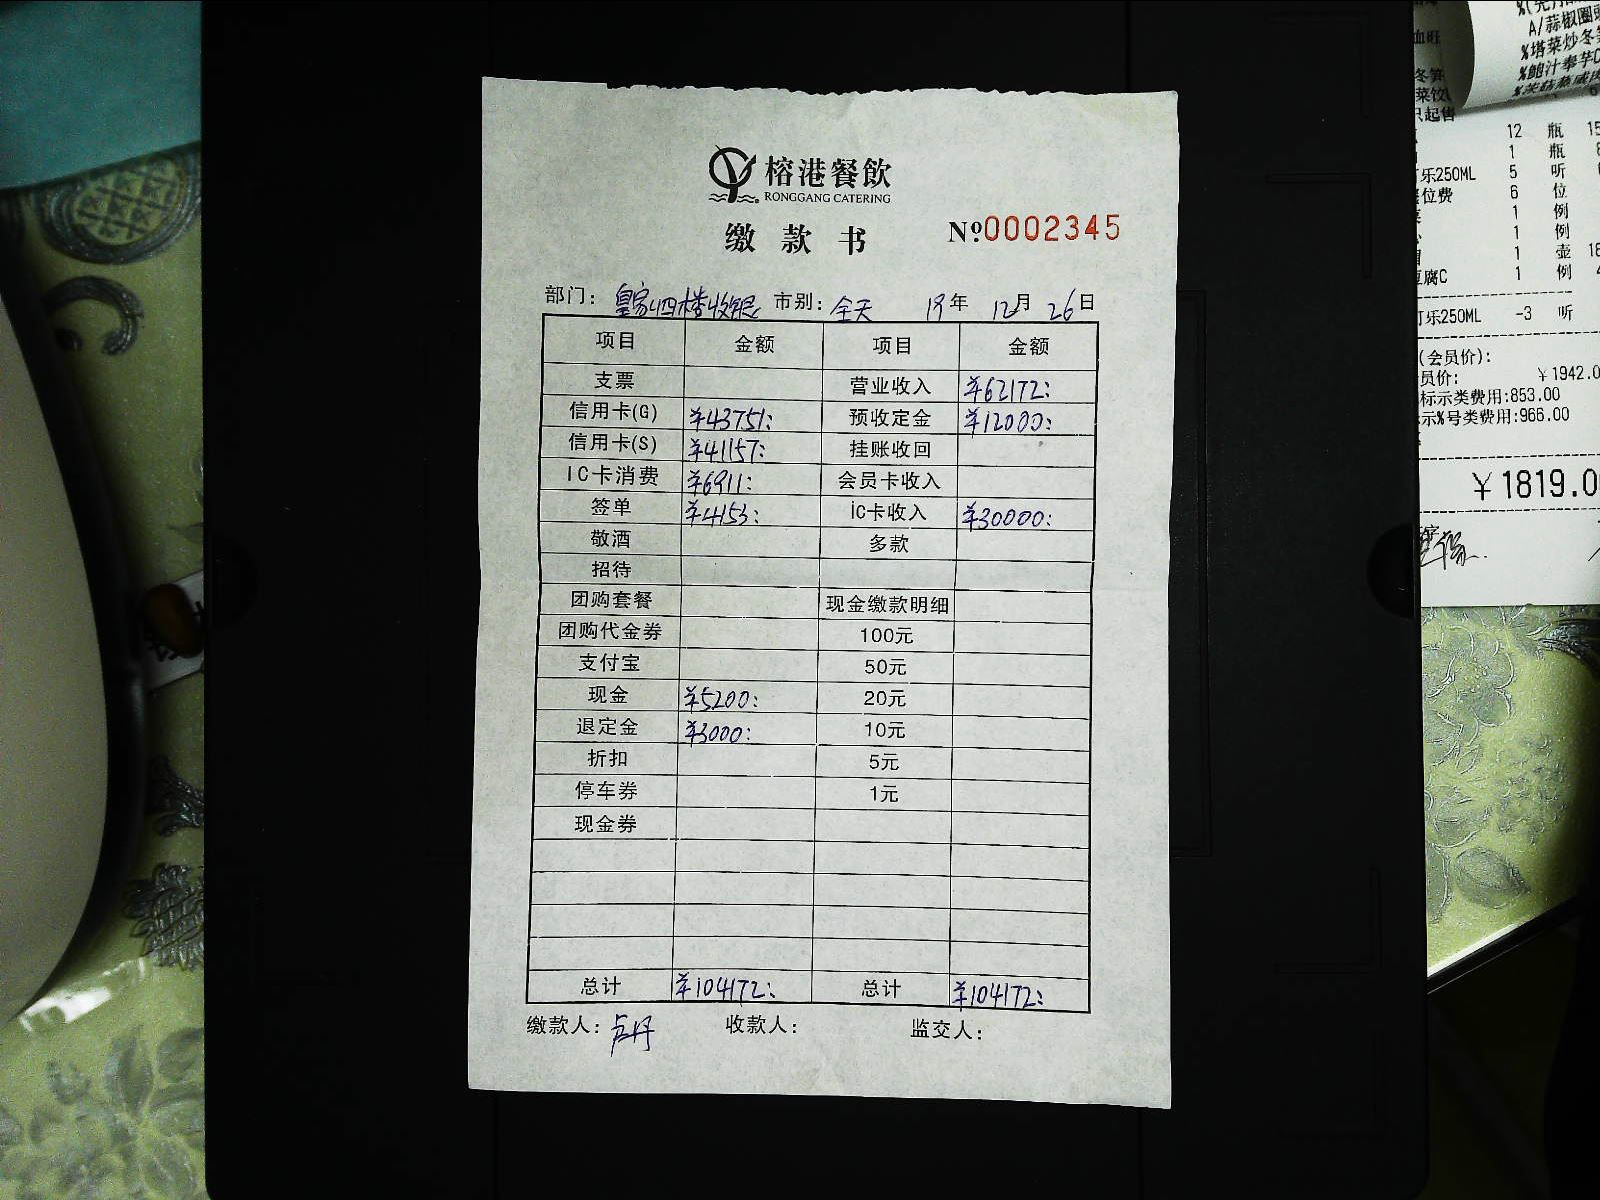 榕港餐飲
RONGGANG CATERING
缴款书 №0002345
部门：皇家四楼收银 市别：全天 19年 12月 26日
项目 金额 项目 金额
支票 营业收入 ¥62172:
信用卡(G) ¥43751: 预收定金 ¥12000:
信用卡(S) ¥41157: 挂账收回
IC卡消费 ¥6911: 会员卡收入
签单 ¥4153: ic卡收入 ¥30000:
敬酒 多款
招待
团购套餐 现金缴款明细
团购代金券 100元
支付宝 50元
现金 ¥5200: 20元
退定金 ¥3000: 10元
折扣 5元
停车券 1元
现金券
总计 ¥104172: 总计 ¥104172:
缴款人：卢丹 收款人： 监交人：
A/蒜椒圈
%塔菜炒冬
%鲍汁奉芋
血旺
冬笋
菜饺
只起售
12 瓶 15
1 瓶 8
乐250ML 5 听
位费 6 位
1 例
1 例
1 壶 18
豆腐C 1 例 4
乐250ML -3 听
(会员价):
员价: ¥1942.0
标示类费用:853.00
示%号类费用:966.00
¥1819.0